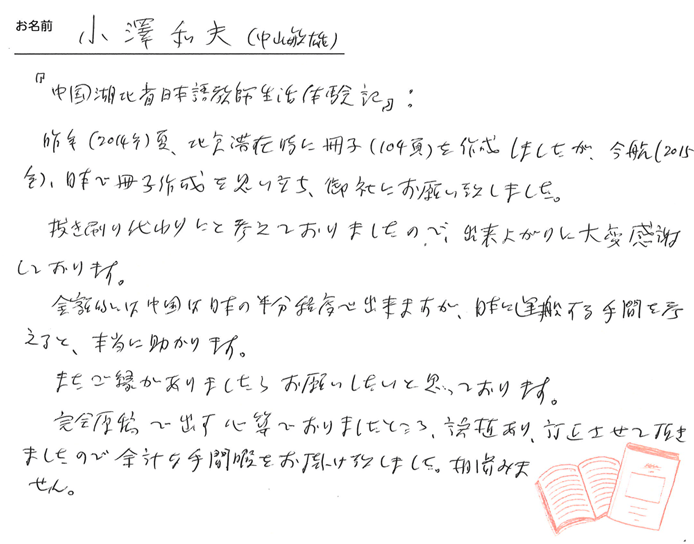 お名前 小澤和夫(中山敏雄)
『中国湖北省日本語教師生活体験記』:
昨年(2014年)夏、北京滞在時に冊子(104頁)を作成しましたが、今般(2015
年)、日本で冊子作成を思い立ち、御社にお願い致しました。
抜き刷り代わりにと考えておりましたので、出来上がりに大変感謝
しております。
金額的には中国は日本の半分程度で出来ますが、日本に運搬する手間を考
えると、本当に助かります。
またご縁がありましたらお願いしたいと思っております。
完全原稿で出す心算でおりましたところ、誤植あり、訂正させて頂き
ましたので余計な手間暇をお掛け致しました。相済みま
せん。